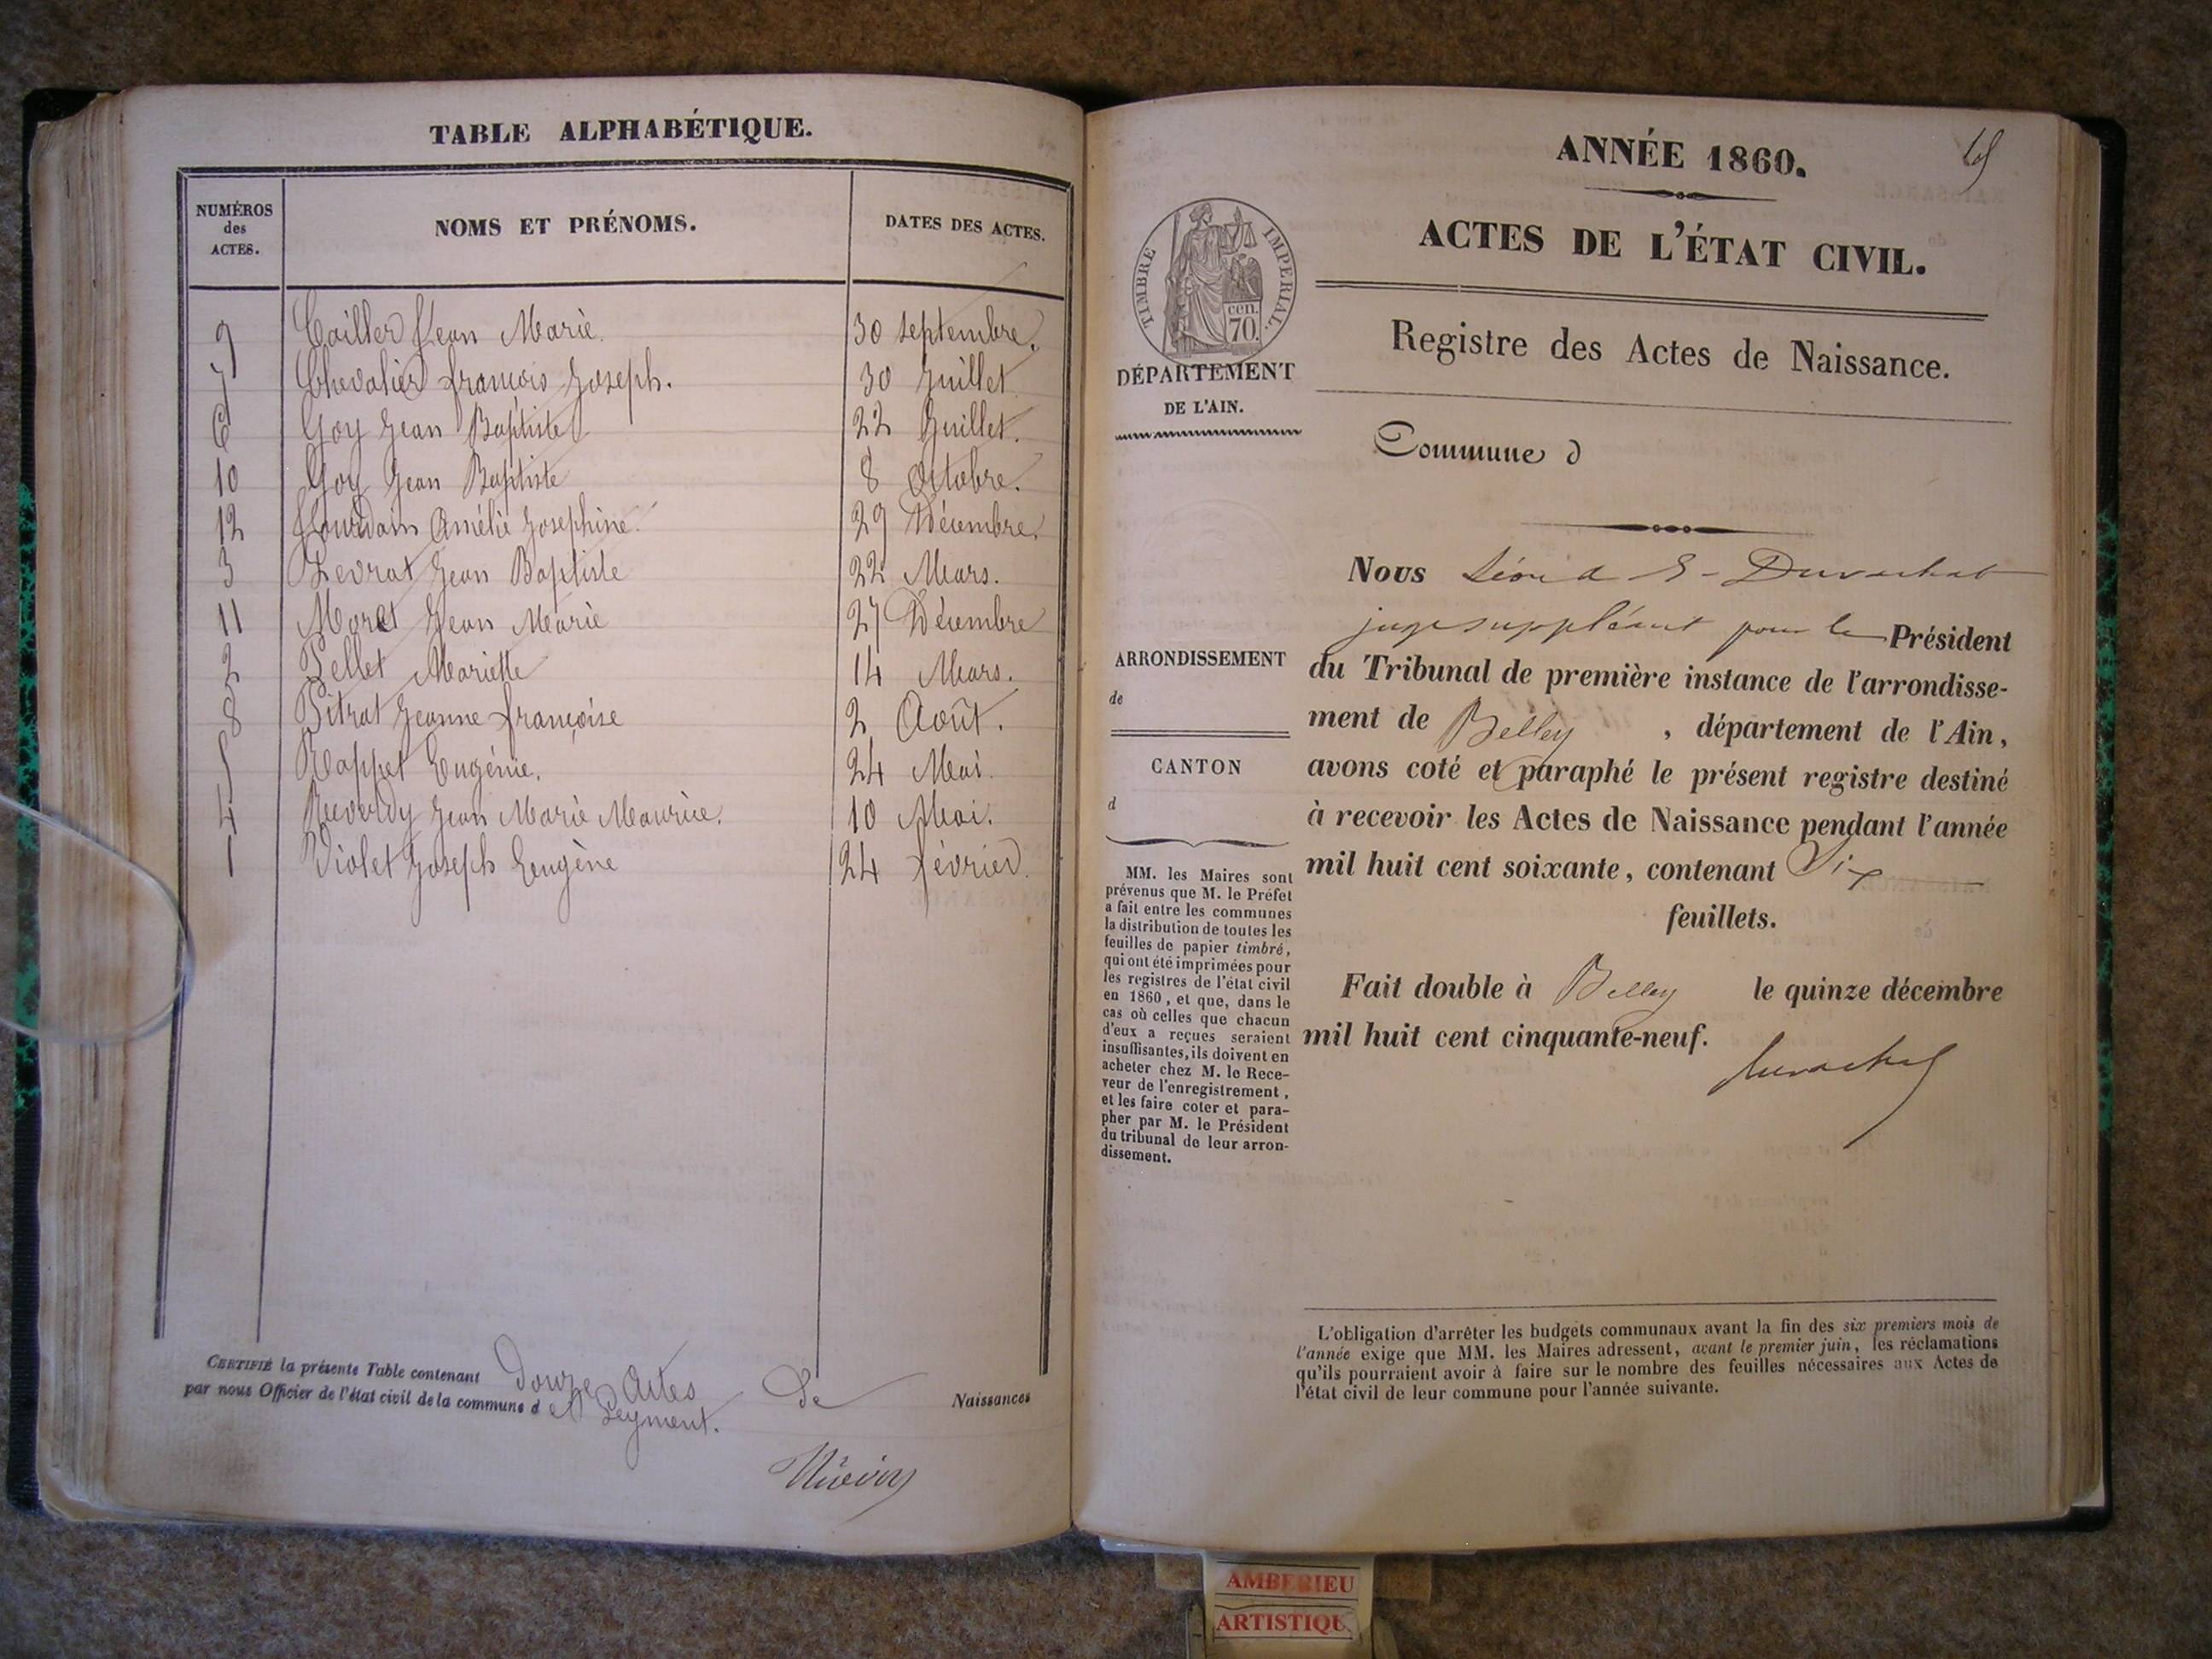 TABLE ALPHABÉTIQUE.
NUMÉROS des ACTES. NOMS ET PRÉNOMS. DATES DES ACTES.
9 Cailler Jean Marie. 30 septembre.
7 Chevalier françois Joseph. 30 Juillet
6 Goy Jean Baptiste 22 Juillet.
10 Goy Jean Baptiste 8 Octobre.
12 Jourdain Amélie Josephine. 29 Décembre.
3 Levrat Jean Baptiste 22 Mars.
11 Moret Jean Marie 27 Décembre
2 Pellet Mariette 14 Mars.
8 Pitrat Jeanne françoise 2 Août.
5 Rappet Eugénie. 24 Mai.
4 Reverdy Jean Marie Maurice. 10 Mai.
1 Violet Joseph Eugène 24 février.
CERTIFIÉ la présente Table contenant Douze Actes de Naissances
par nous Officier de l'état civil de la commune d Leyment.
ANNÉE 1860.
ACTES DE L'ÉTAT CIVIL.
TIMBRE IMPERIAL.
cen.
70.
DÉPARTEMENT
DE L'AIN.
Registre des Actes de Naissance.
Commune d
Nous Duvachat
juge suppléant pour le Président
du Tribunal de première instance de l'arrondisse-
ment de Belley , département de l'Ain,
avons coté et paraphé le présent registre destiné
à recevoir les Actes de Naissance pendant l'année
mil huit cent soixante, contenant Six
feuillets.
Fait double à Belley le quinze décembre
mil huit cent cinquante-neuf.
Duvachat
ARRONDISSEMENT
de
CANTON
d
MM. les Maires sont
prévenus que M. le Préfet
a fait entre les communes
la distribution de toutes les
feuilles de papier timbré,
qui ont été imprimées pour
les registres de l'état civil
en 1860, et que, dans le
cas où celles que chacun
d'eux a reçues seraient
insuffisantes, ils doivent en
acheter chez M. le Rece-
veur de l'enregistrement,
et les faire coter et para-
pher par M. le Président
du tribunal de leur arron-
dissement.
L'obligation d'arrêter les budgets communaux avant la fin des six premiers mois de
l'année exige que MM. les Maires adressent, avant le premier juin, les réclamations
qu'ils pourraient avoir à faire sur le nombre des feuilles nécessaires aux Actes de
l'état civil de leur commune pour l'année suivante.
AMBERIEU
ARTISTIQU